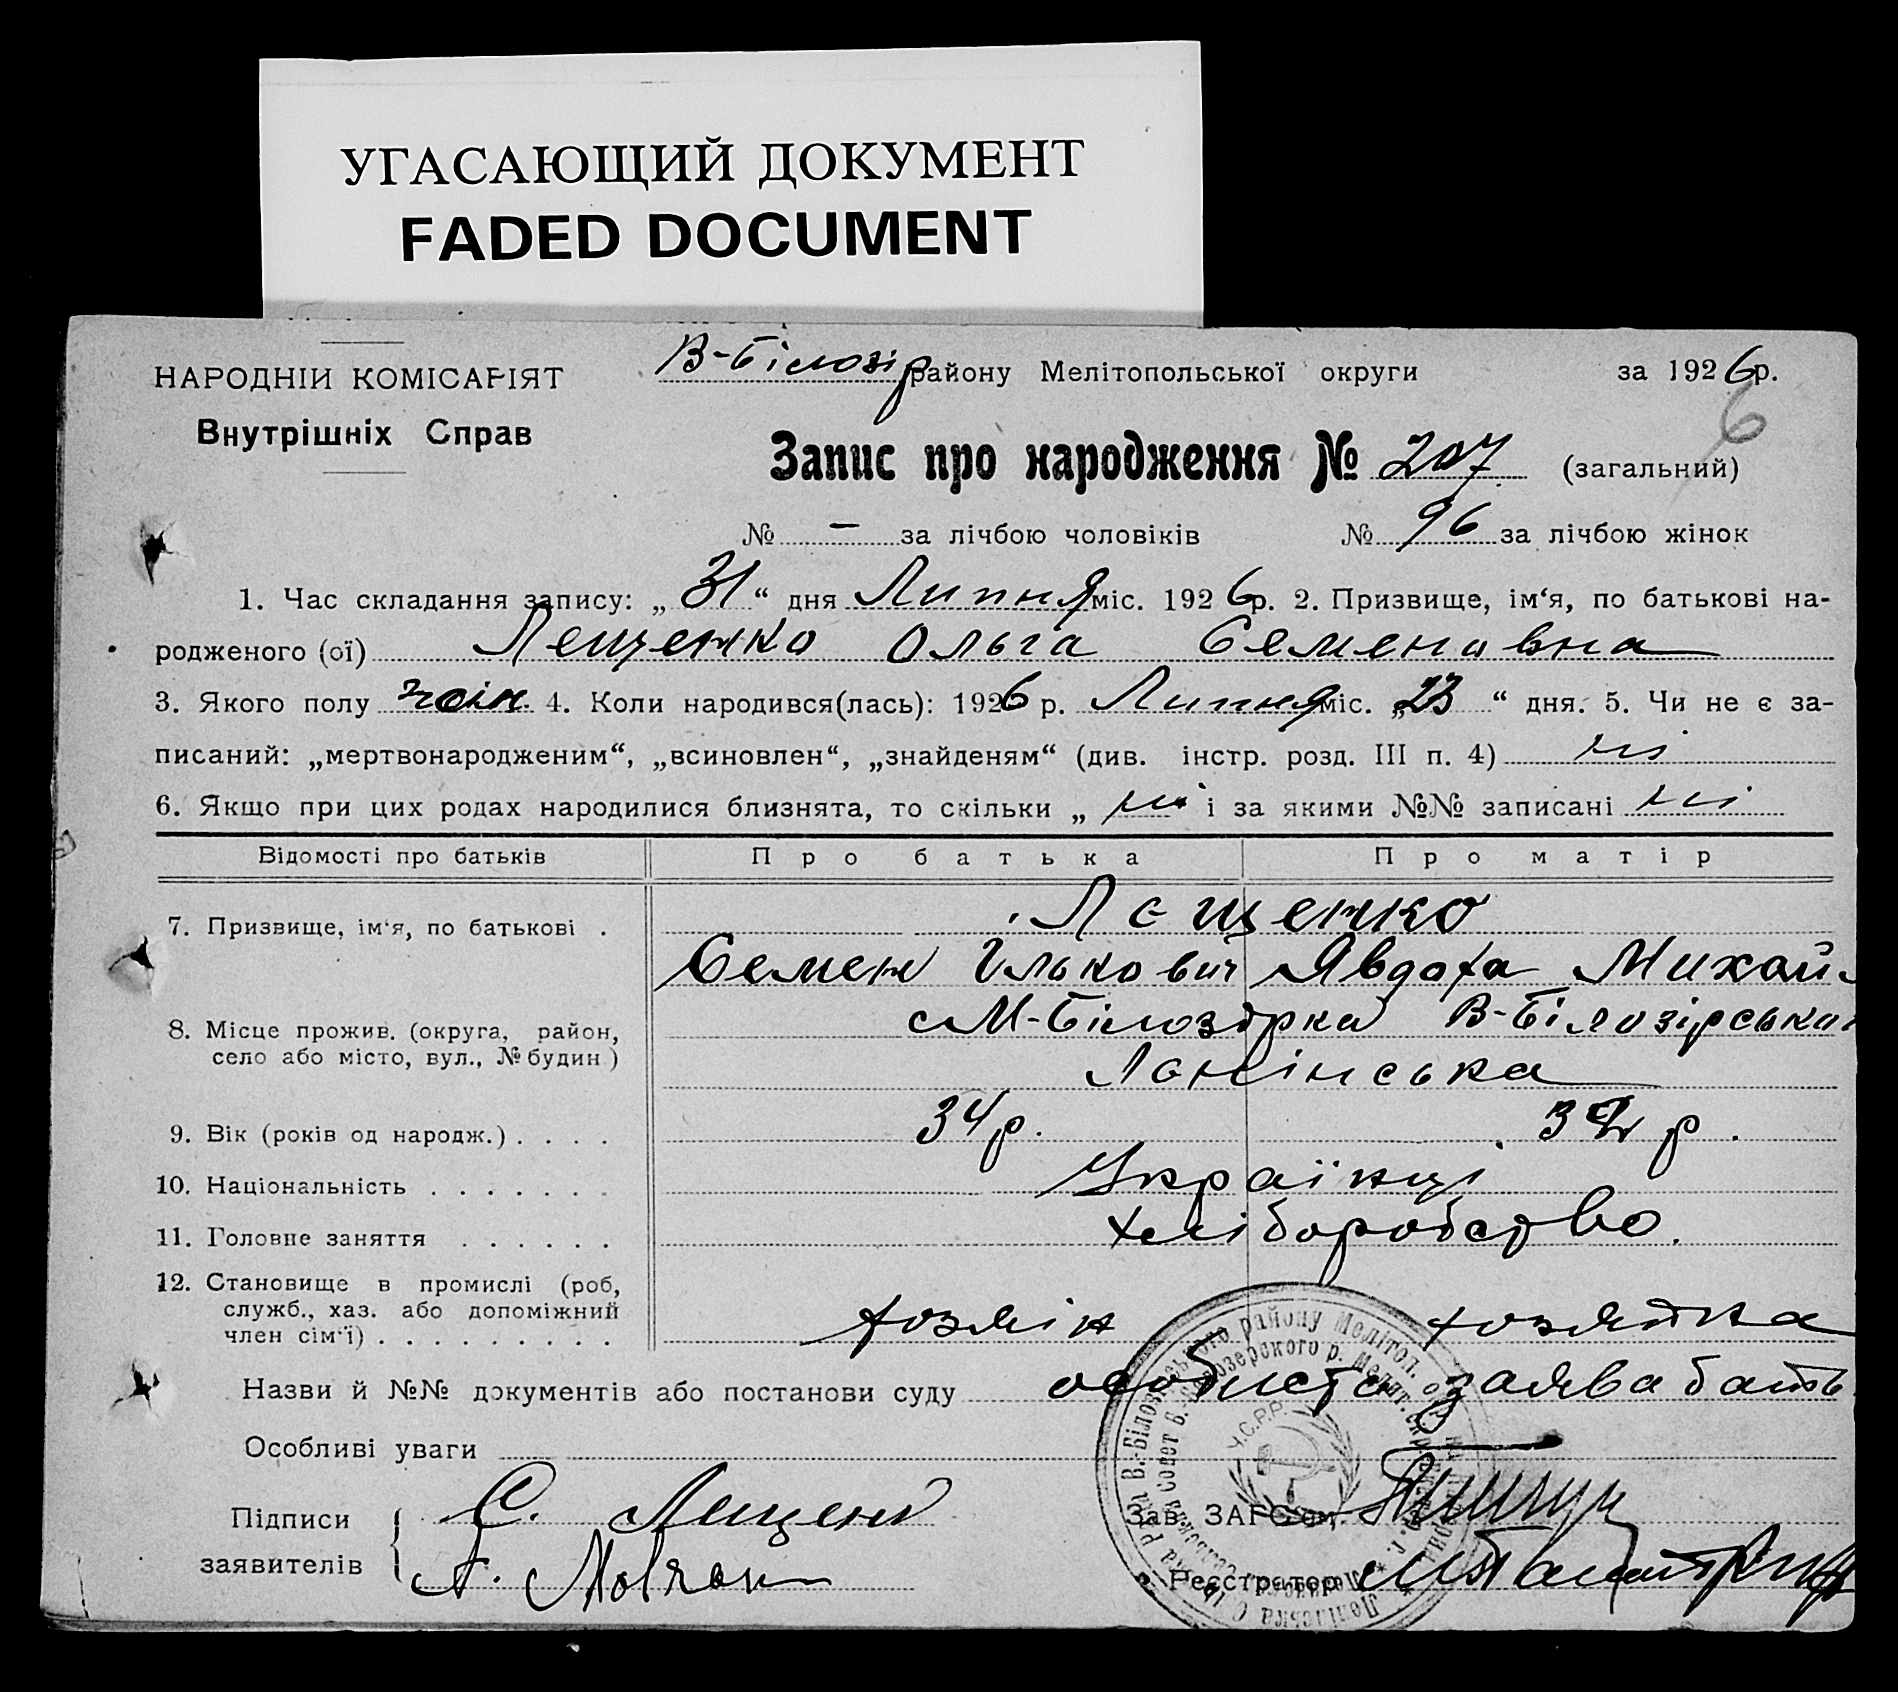 УГАСАЮЩИЙ ДОКУМЕНТ
FADED DOCUMENT
НАРОДНІЙ КОМІСАРІЯТ
Внутрішніх Справ
В-Білозір району Мелітопольської округи за 1926 р.
6
Запис про народження № 207 (загальний)
№ — за лічбою чоловіків № 96 за лічбою жінок
1. Час складання запису: „31“ дня Липня міс. 1926 р. 2. Призвище, ім‘я, по батькові на-
родженого (ої) Лещенко Ольга Семеновна
3. Якого полу жін. 4. Коли народився(лась): 1926 р. Липня міс. „23“ дня. 5. Чи не є за-
писаний: „мертвонародженим“, „всиновлен“, „знайденям“ (див. інстр. розд. III п. 4) ні
6. Якщо при цих родах народилися близнята, то скільки „ ні “ і за якими №№ записані ні
Відомості про батьків Про батька Про матір
7. Призвище, ім‘я, по батькові . Лєщенко
Семен Ількович Явдоха Михай
8. Місце прожив. (округа, район, с М-Білозірка В-Білозірська
село або місто, вул., № будин) Ленінська
9. Вік (років од народж.) . . . . 34 р. 32 р.
10. Національність . . . . . . . Українці
11. Головне заняття . . . . . . хліборобство.
12. Становище в промислі (роб,
служб., хаз. або допоміжний
член сім‘ї) . . . . . . . . . хозяїн хозяйка
Назви й №№ документів або постанови суду особиста заява бать
Особливі уваги
Підписи
заявителів
С. Лещенко
А. Мовчан
Зав. ЗАГС‘ом
Реєстратор
У.С.Р.Р.